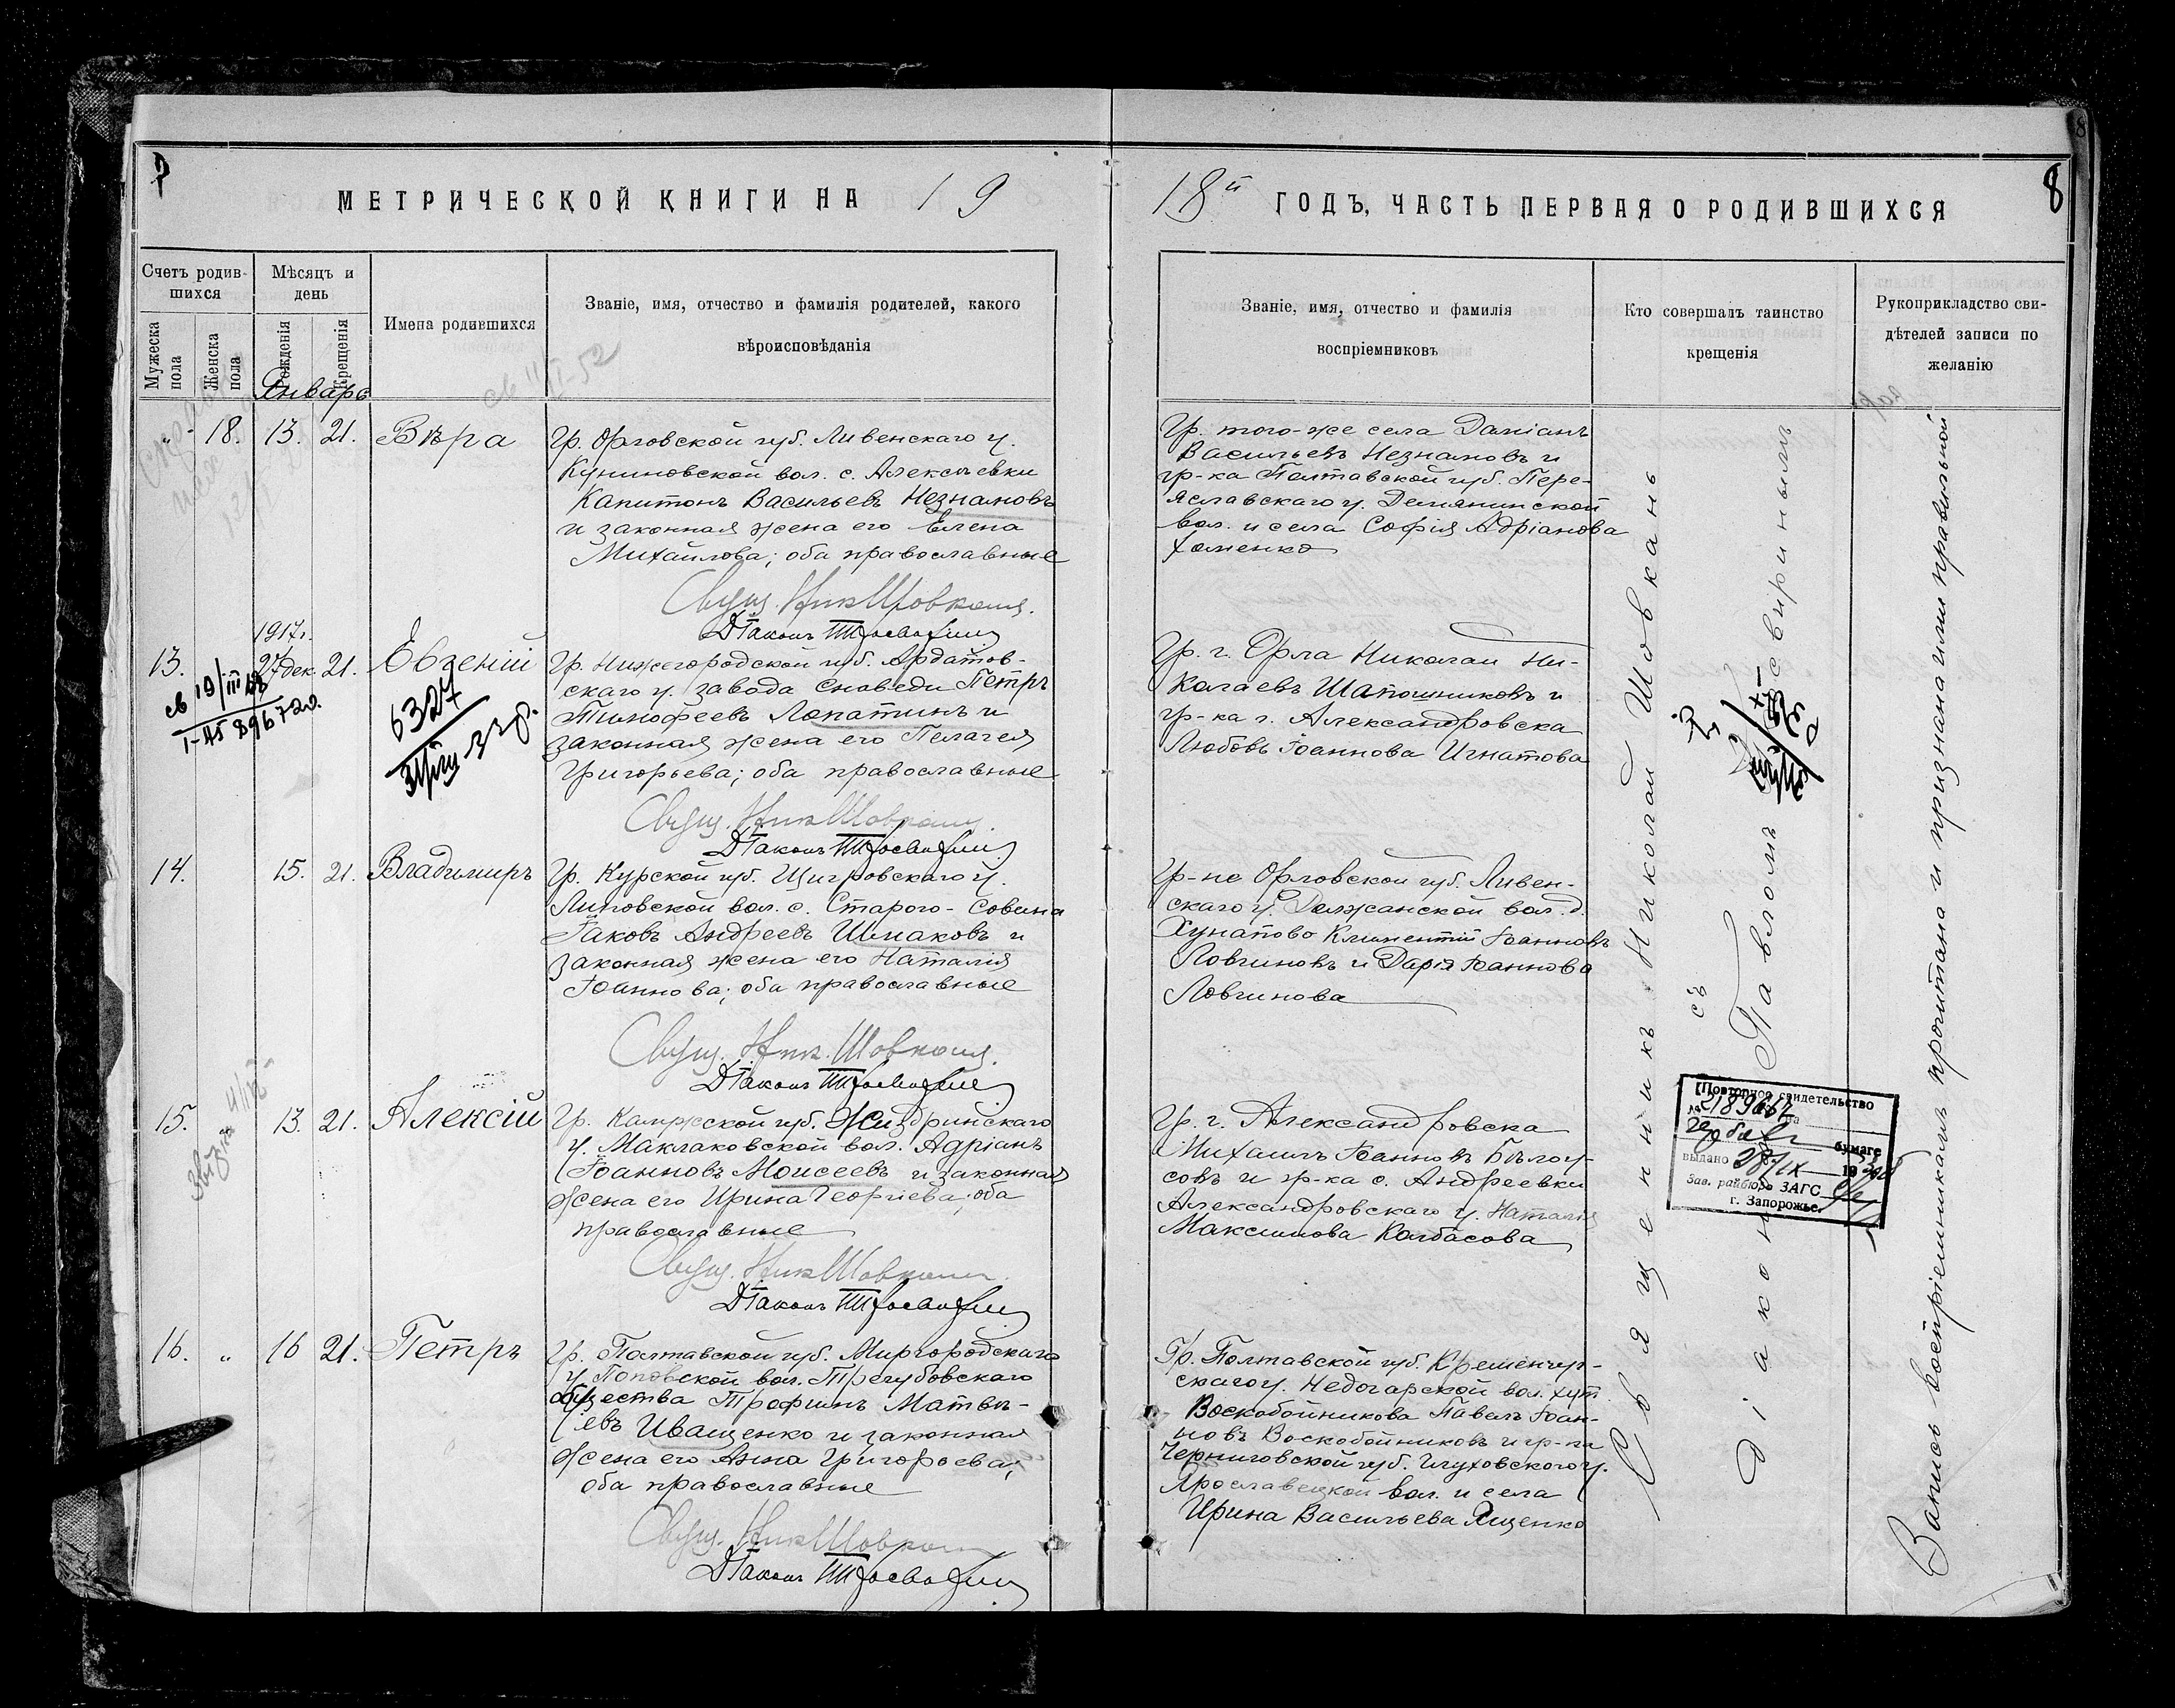 8
МЕТРИЧЕСКОЙ КНИГИ НА 19
18й ГОДЪ, ЧАСТЬ ПЕРВАЯ О РОДИВШИХСЯ
8
Счетъ родив-
шихся
Мужеска пола
Женска пола
Мѣсяцъ и
день
Рожденія
Крещенія
Имена родившихся
Званіе, имя, отчество и фамилія родителей, какого
вѣроисповѣданія
Званіе, имя, отчество и фамилія
воспріемниковъ
Кто совершалъ таинство
крещенія
Рукоприкладство сви-
дѣтелей записи по
желанію
Январь
„ 18. 13. 21. Вѣра
Гр. Орловской губ. Ливенскаго у.
вол. с. Алексѣевки
Капитонъ Васильевъ Незнамовъ
и законная жена его Елена
Михайлова; оба православные
Свящ. Ник Шовкань.
Діаконъ
Гр. того-же села Даміанъ
Васильевъ Незнамовъ и
гр-ка Полтавской губ. Пере-
яславскаго у. Демянинской
вол. и села Софія Адріанова
Хоменко
1917г.
13. 27 дек. 21. Евгеній
св 19/III
6327
Гр. Нижегородской губ. Ардатов-
скаго у. завода Сноведи Петръ
Тимофеевъ Лопатинъ и
законная жена его Пелагея
Григорьева; оба православные
Свящ. Ник Шовкань.
Діаконъ
Гр. г. Орла Николай Ни-
колаевъ Шапошниковъ и
гр-ка г. Александровска
Любовь Іоаннова Игнатова
14. 15. 21. Владимиръ
Гр. Курской губ. Щигровскаго у.
Липовской вол. с. Старого-Савина
Іаковъ Андреевъ Шмаковъ и
законная жена его Наталія
Іоаннова; оба православные
Свящ. Ник. Шовкань.
Діаконъ
Гр-не Орловской губ. Ливен-
скаго у. Должанской вол. д.
Климентій Іоанновъ
Ловчиновъ и Дарія Іоаннова
Ловчинова
15. 13. 21. Алексій
Гр. Калужской губ. Жиздринскаго
у. Маклаковской вол. Адріанъ
Іоанновъ Моисеевъ и законная
жена его Ирина Георгіева; оба
православные
Свящ. Ник Шовкань.
Діаконъ
Гр. г. Александровска
Михаилъ Іоанновъ Бѣлоу-
совъ и гр-ка с. Андреевки
Александровскаго у. Наталія
Максимова Колбасова
16. „ 16 21. Петръ
Гр. Полтавской губ. Миргородскаго
у. Поповской вол. Трегубовскаго
общества Трофимъ Матвѣ-
евъ Иващенко и законная
жена его Анна Григорьева;
оба православные
Свящ. Ник Шовкань
Діаконъ
Гр. Полтавской губ. Кременчуг-
скаго у. Недогарской вол. хут.
Воскобойникова Павелъ Іоан-
новъ Воскобойниковъ и гр-ка
Черниговской губ. Глуховского у.
Ярославецкой вол. и села
Ирина Васильева Ященко
Священникъ Николай Шовкань
съ
Діакономъ Павломъ
Повторное свидетельство
№
бумаге
выдано 28/IX 19
Зав. райбюро ЗАГС
г. Запорожье.
Запись воспріемниками прочитана и признана ими правильной